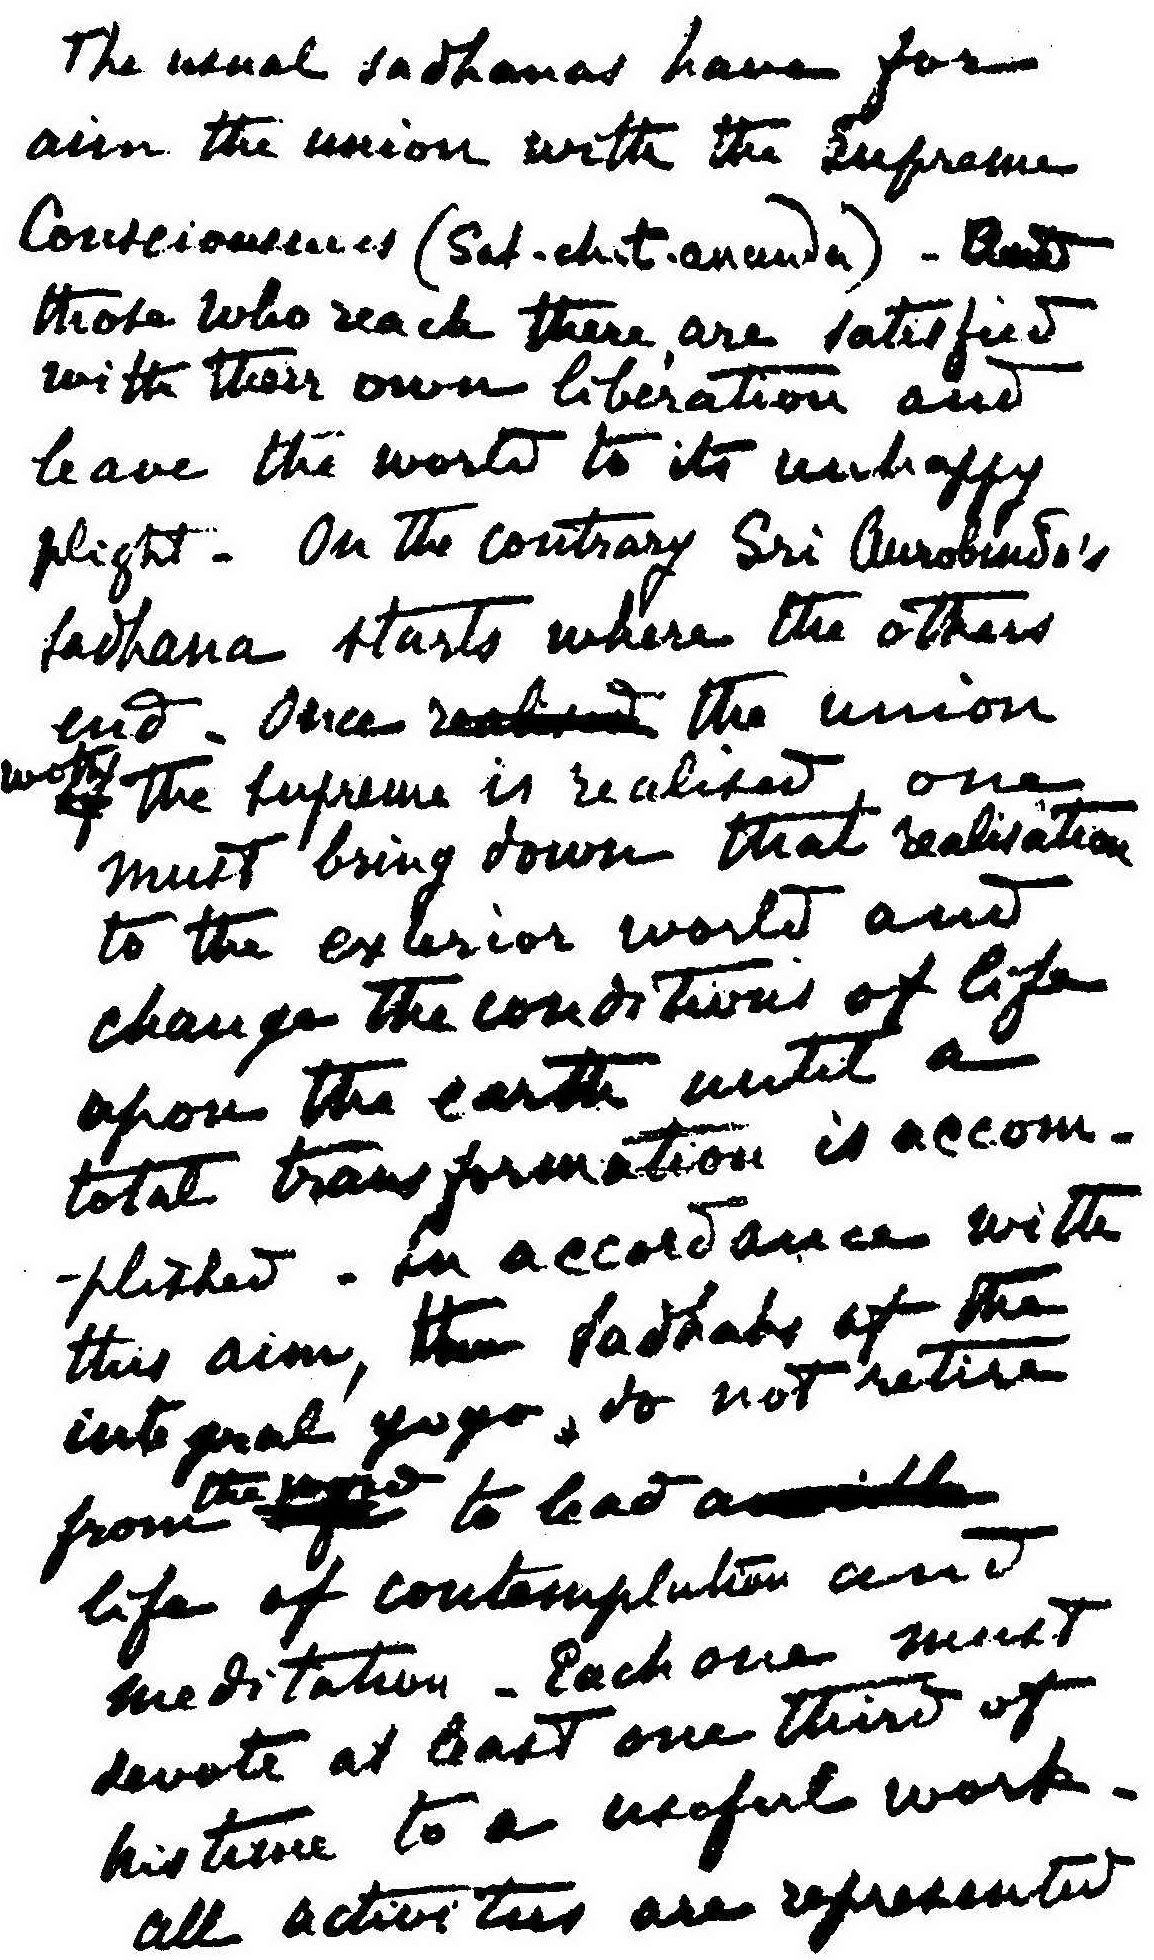 The usual sadhanas have for
aim the union with the Supreme
Consciousness (Sat-chit-ananda) - And
those who reach there, are satisfied
with their own liberation and
leave the world to its unhappy
plight - On the contrary Sri Aurobindo's
sadhana starts where the others
end - Once realised the union
with the supreme is realised, one
must bring down that realisation
to the exterior world and
change the conditions of life
upon the earth until a
total transformation is accom-
-plished - In accordance with
this aim, the sadhaks of the
integral yoga, do not retire
from the world to lead a
life of contemplation and
meditation - Each one must
devote at least one third of
his time to a useful work -
all activities are represented